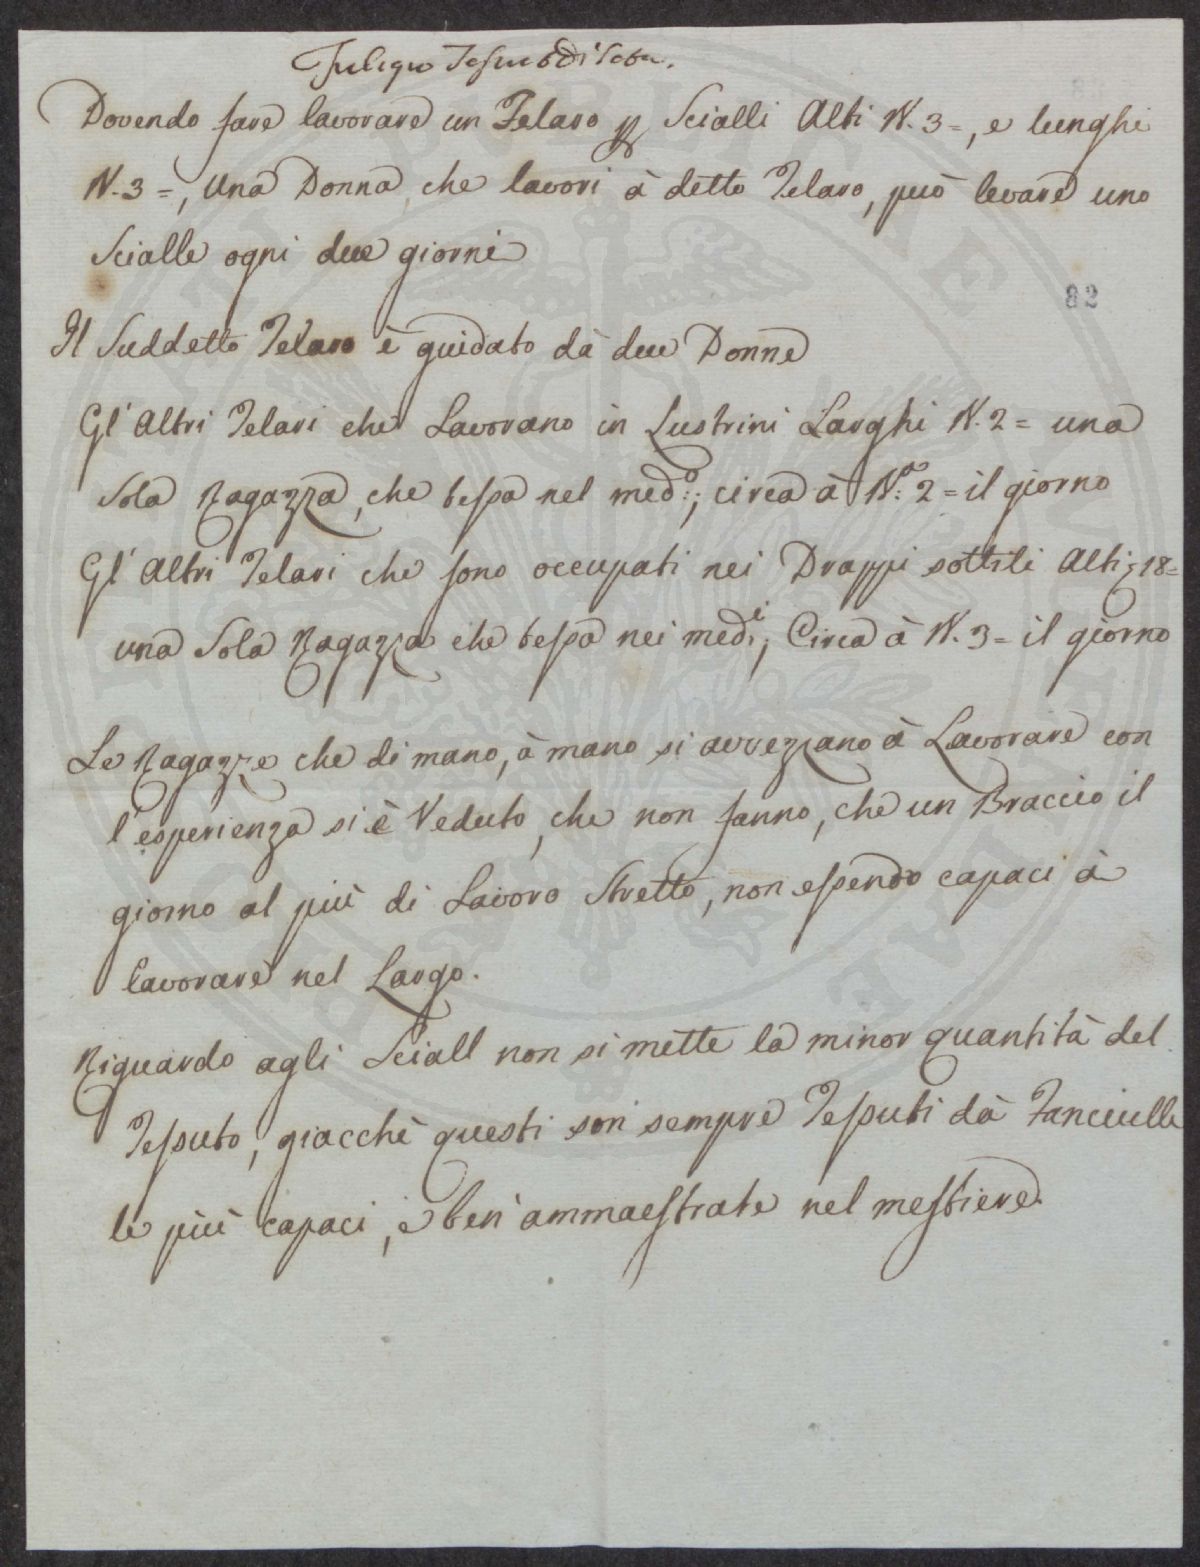 Fuligno Tessuti di Seta.
Dovendo fare lavorare un Telaro p Scialli Alti N. 3 =, e lunghi
N. 3 =, Una Donna, che lavori à detto Telaro, può levare uno
Scialle ogni due giorni
82
Il Suddetto Telaro è guidato dà due Donne
Gl' Altri Telari che Lavorano in Lustrini Larghi N. 2 = una
Sola Ragazza, che tessa nel med.º; circa à N.º 2 = il giorno
Gl' Altri Telari che sono occupati nei Drappi sottili Alti 18 =
una Sola Ragazza che tessa nei medi, Circa à N. 3 = il giorno
Le Ragazze che di mano, à mano si avvezzano à Lavorare con
l'esperienza si è Veduto, che non fanno, che un Braccio il
giorno al più di Lavoro Stretto, non essendo capaci à
lavorare nel Largo.
Riguardo agli Sciall non si mette la minor quantità del
Tessuto, giacchè questi son sempre Tessuti dà Fanciulle
le più capaci, e ben' ammaestrate nel mestiere.